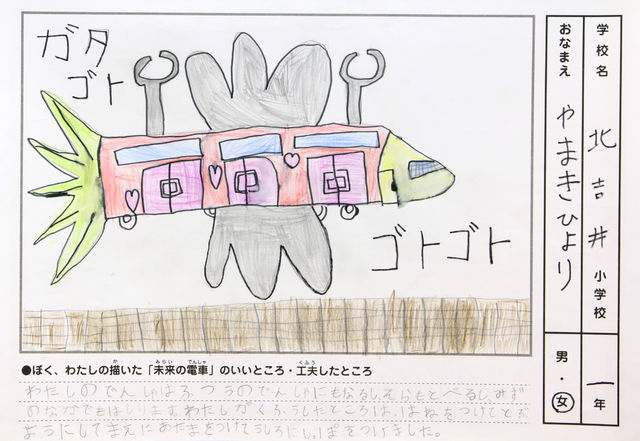 ガタ
ゴト
ゴトゴト
学校名
北吉井
小学校
おなまえ
やまきひより
男・女
一年
●ぼく、わたしの描いた「未来の電車」のいいところ・工夫したところ
わたしのでんしゃはふつうのでんしゃにもなるしそらもとべるしみず
のなかでもはしりますわたしがくふうしたところは、はねをつけてとぶ
ようにしてまえにあたまをつけてうしろにしっぽをつけました。